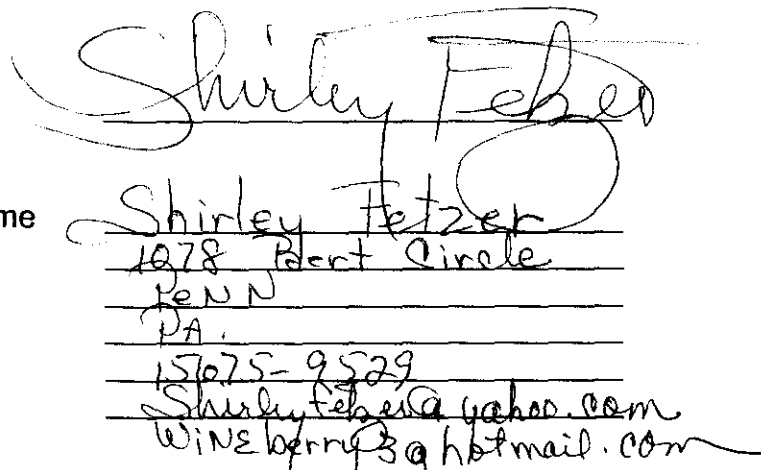 Shirley Fetzer
me Shirley Fetzer
1078 Circle
PENN
PA.
15675-9529
Shirleyfetzer@yahoo.com
WiNEberry3@hotmail.com